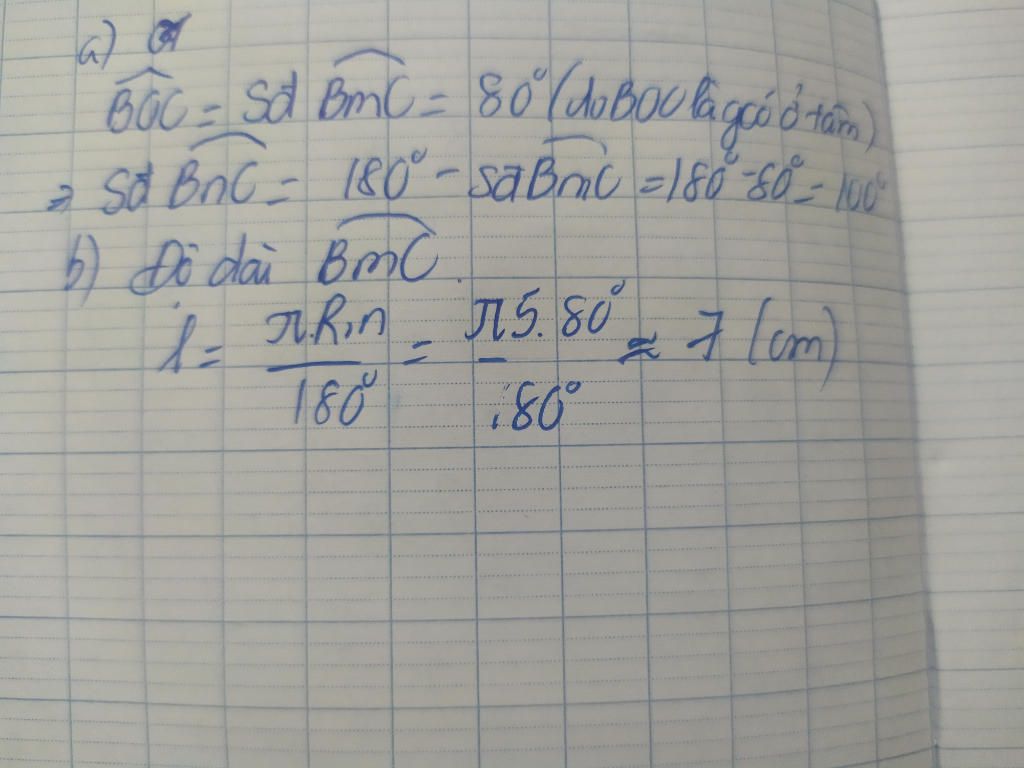 a)
BOC = Sđ BmC = 80° (do BOC là góc ở tâm)
=> Sđ BnC = 180° - Sđ BmC = 180° - 80° = 100°
b) Độ dài BmC.
l = π.R.n / 180° = π5.80° / 180° ≈ 7 (cm)